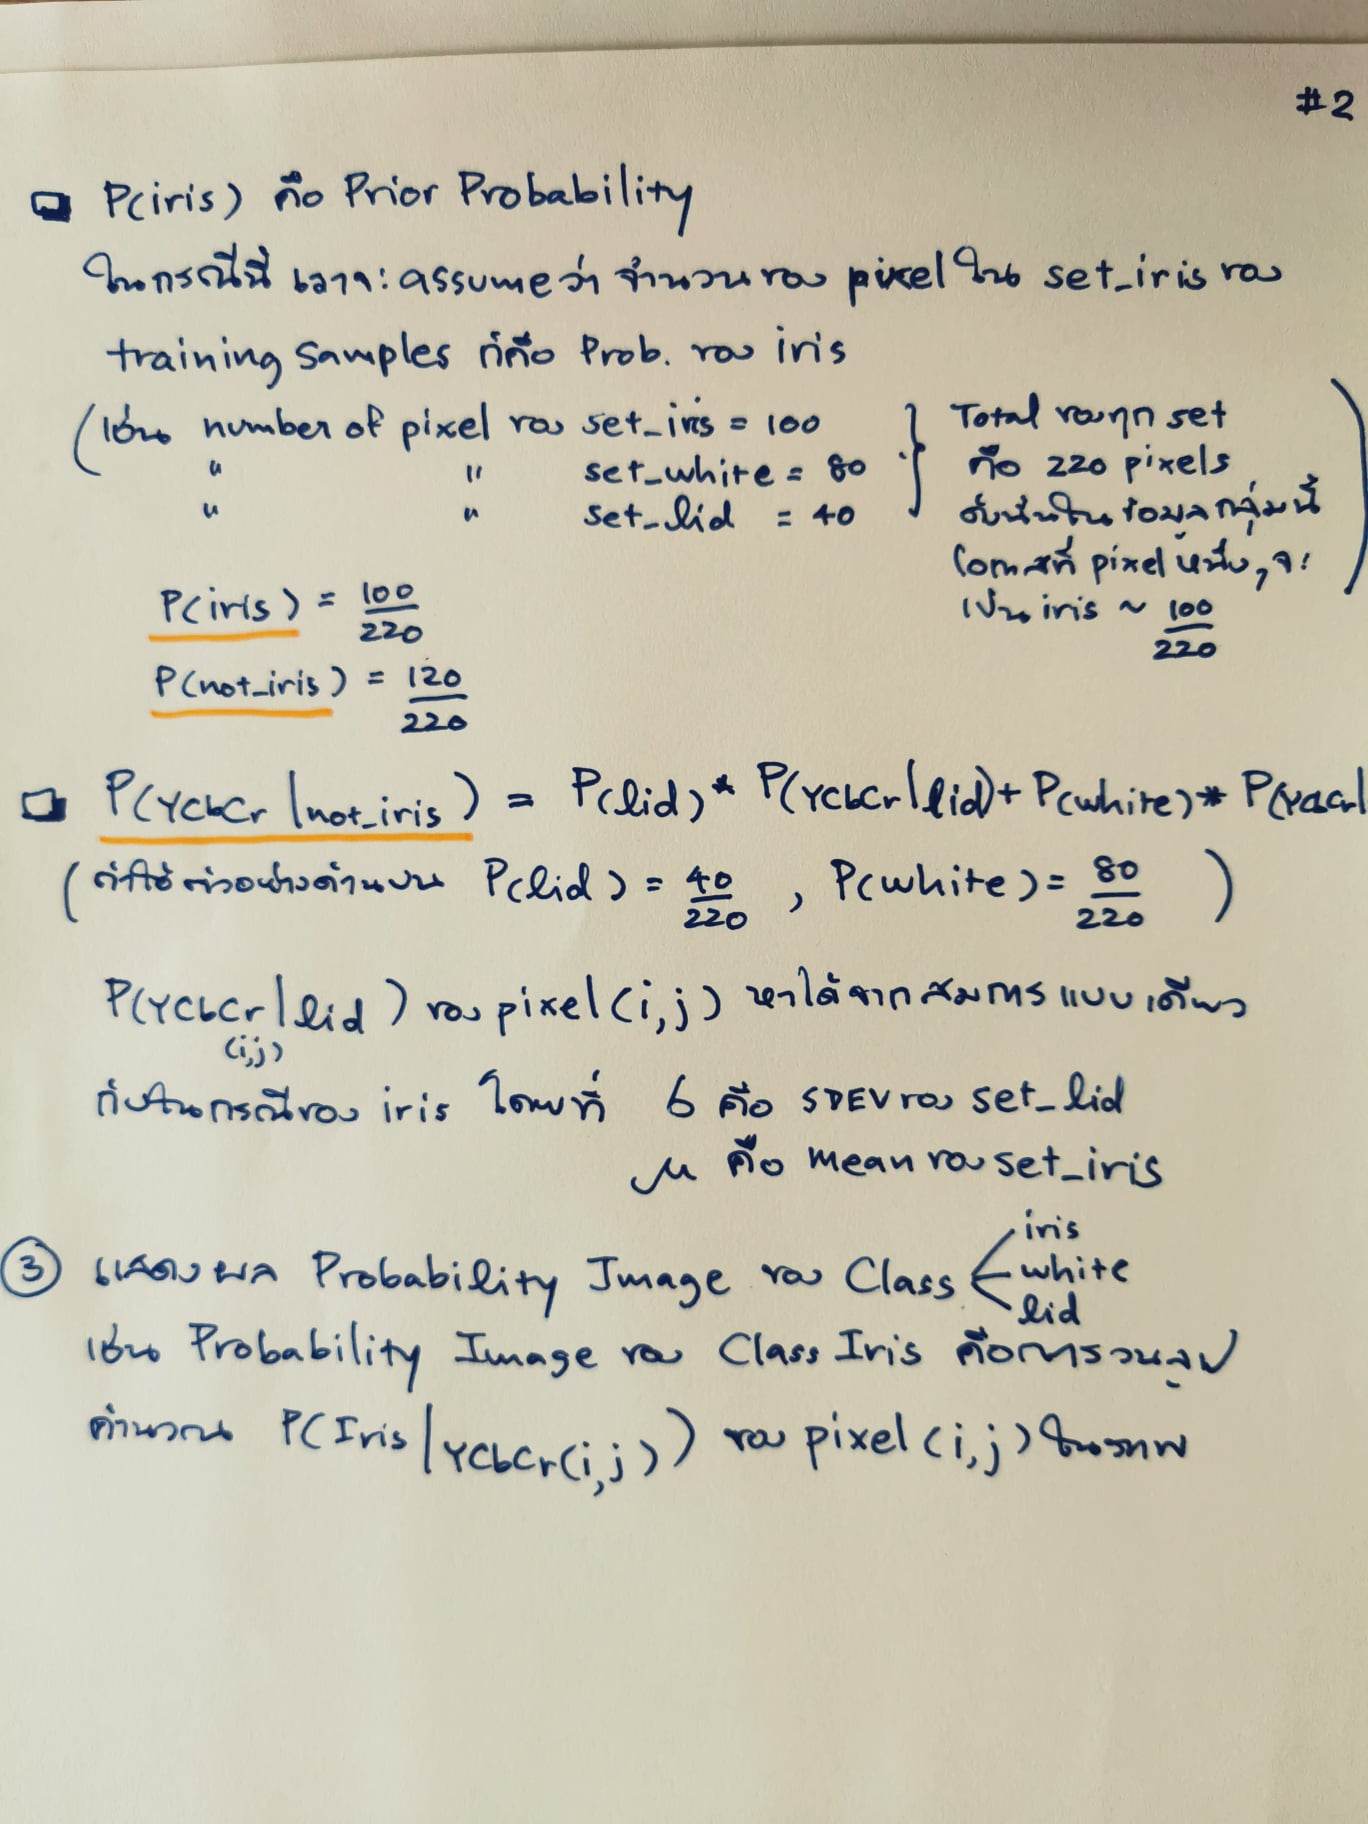 #2
P(iris) คือ Prior Probability
ในกรณีนี้ เราจะ assume ว่า จำนวนของ pixel ใน set_iris ของ
training samples ก็คือ Prob. ของ iris
(เช่น number of pixel ของ set_iris = 100
" " set_white = 80
" " set_lid = 40
Total ของทุก set
คือ 220 pixels
ดังนั้นในข้อมูลกลุ่มนี้
โอกาสที่ pixel หนึ่งๆ จะ
เป็น iris ~ 100/220 )
P(iris) = 100/220
P(not_iris) = 120/220
P(YCbCr | not_iris) = P(lid) * P(YCbCr | lid) + P(white) * P(YCbCr |
(ถ้าใช้ตัวอย่างด้านบน P(lid) = 40/220 , P(white) = 80/220 )
P(YCbCr | lid) ของ pixel(i,j) หาได้จากสมการแบบเดียว
(i,j)
กับในกรณีของ iris โดยที่ σ คือ SDEV ของ set_lid
μ คือ mean ของ set_iris
3 แสดงผล Probability Image ของ Class iris
white
lid
เช่น Probability Image ของ Class Iris คือการวนลูป
คำนวณ P(Iris | YCbCr(i,j)) ของ pixel(i,j) ในภาพ